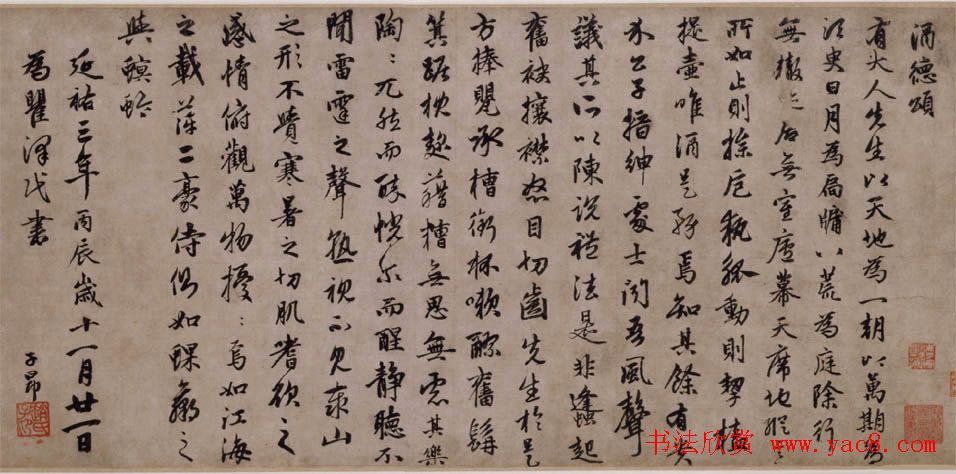 酒德頌
有大人先生以天地為一朝以萬期為
須臾日月為扃牖八荒為庭除行
無轍迹居無室廬幕天席地縱意
所如止則操卮執觚動則挈榼
提壺唯酒是務焉知其餘有貴
介公子搢紳處士聞吾風聲
議其所以陳說禮法是非蠭起
奮袂攘襟怒目切齒先生於是
方捧甖承槽銜杯嗽醪奮髯
箕踞枕麴藉糟無思無慮其樂
陶:兀然而醉恍尔而醒静聽不
聞雷霆之聲孰視不見泰山
之形不覺寒暑之切肌嗜欲之
感情俯觀萬物擾:焉如江海
之載萍二豪侍側如蜾蠃之
與螟蛉
延祐三年丙辰歲十一月廿一日
為瞿澤民書
子昂
书法欣赏 www.yac8.com